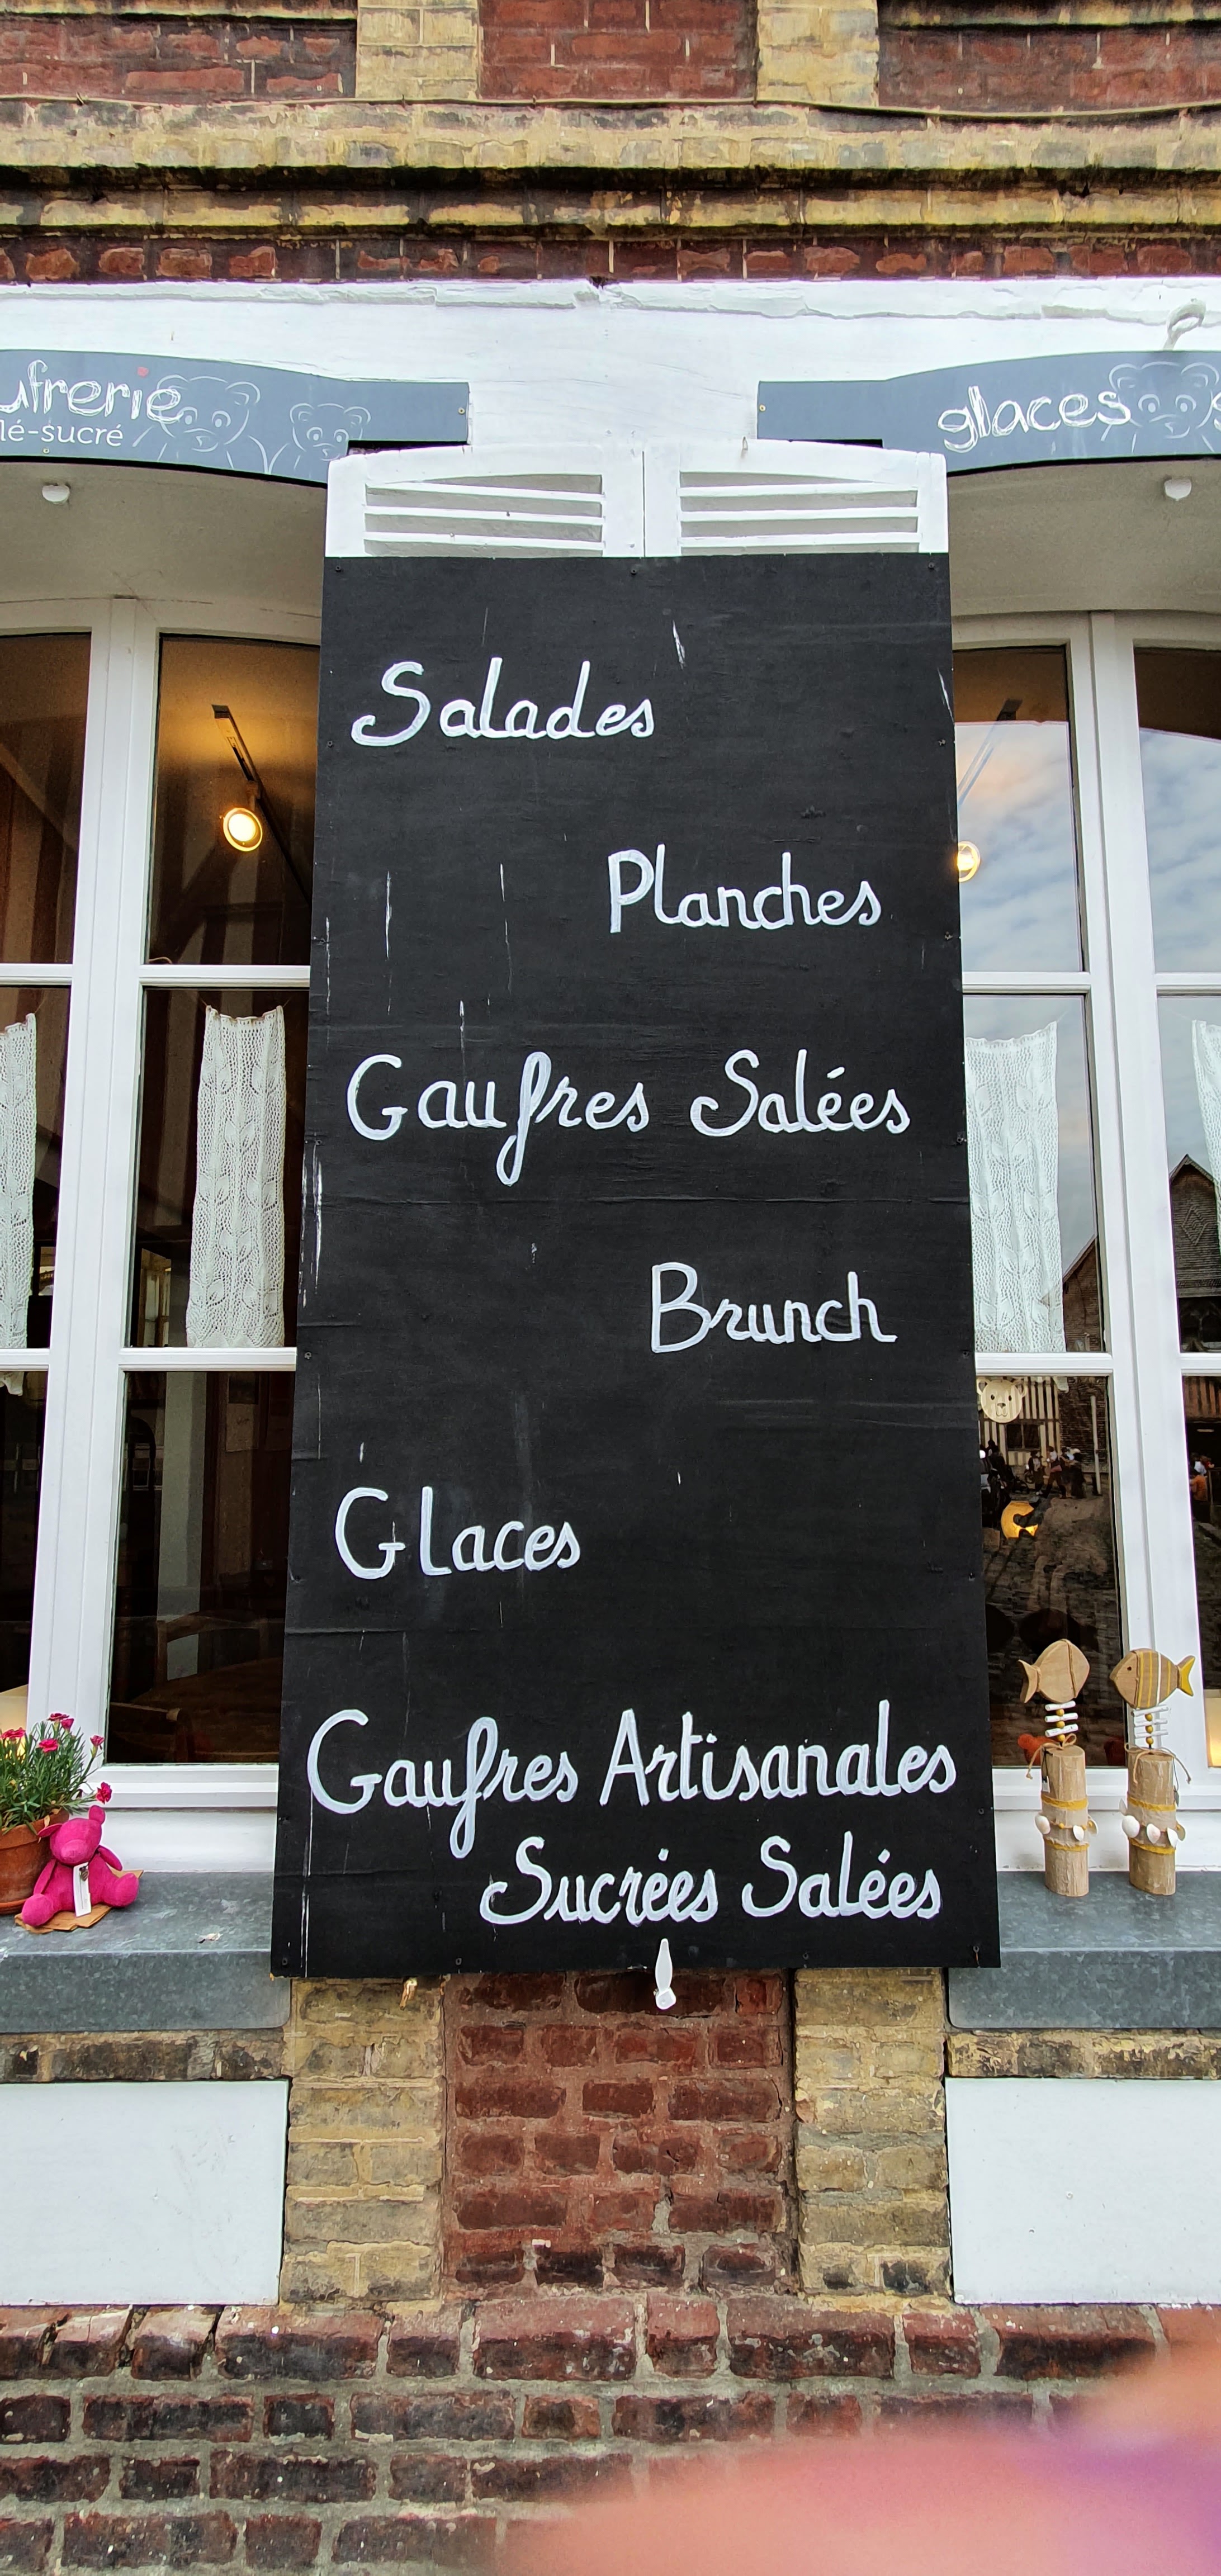 ufrerie
lé-sucré
glaces
Salades
Planches
Gaufres Salées
Brunch
Glaces
Gaufres Artisanales
Sucrées Salées